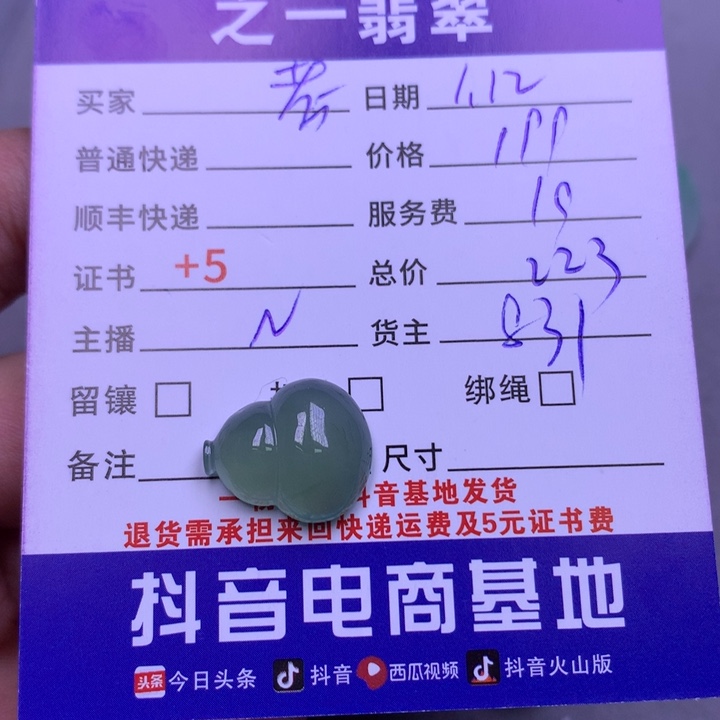 之一翡翠
买家 日期 1.12
普通快递 价格 199
顺丰快递 服务费 19
证书 +5 总价 223
主播 N 货主 831
留镶 绑绳
备注 尺寸
抖音基地发货
退货需承担来回快递运费及5元证书费
抖音电商基地
头条 今日头条 抖音 西瓜视频 抖音火山版